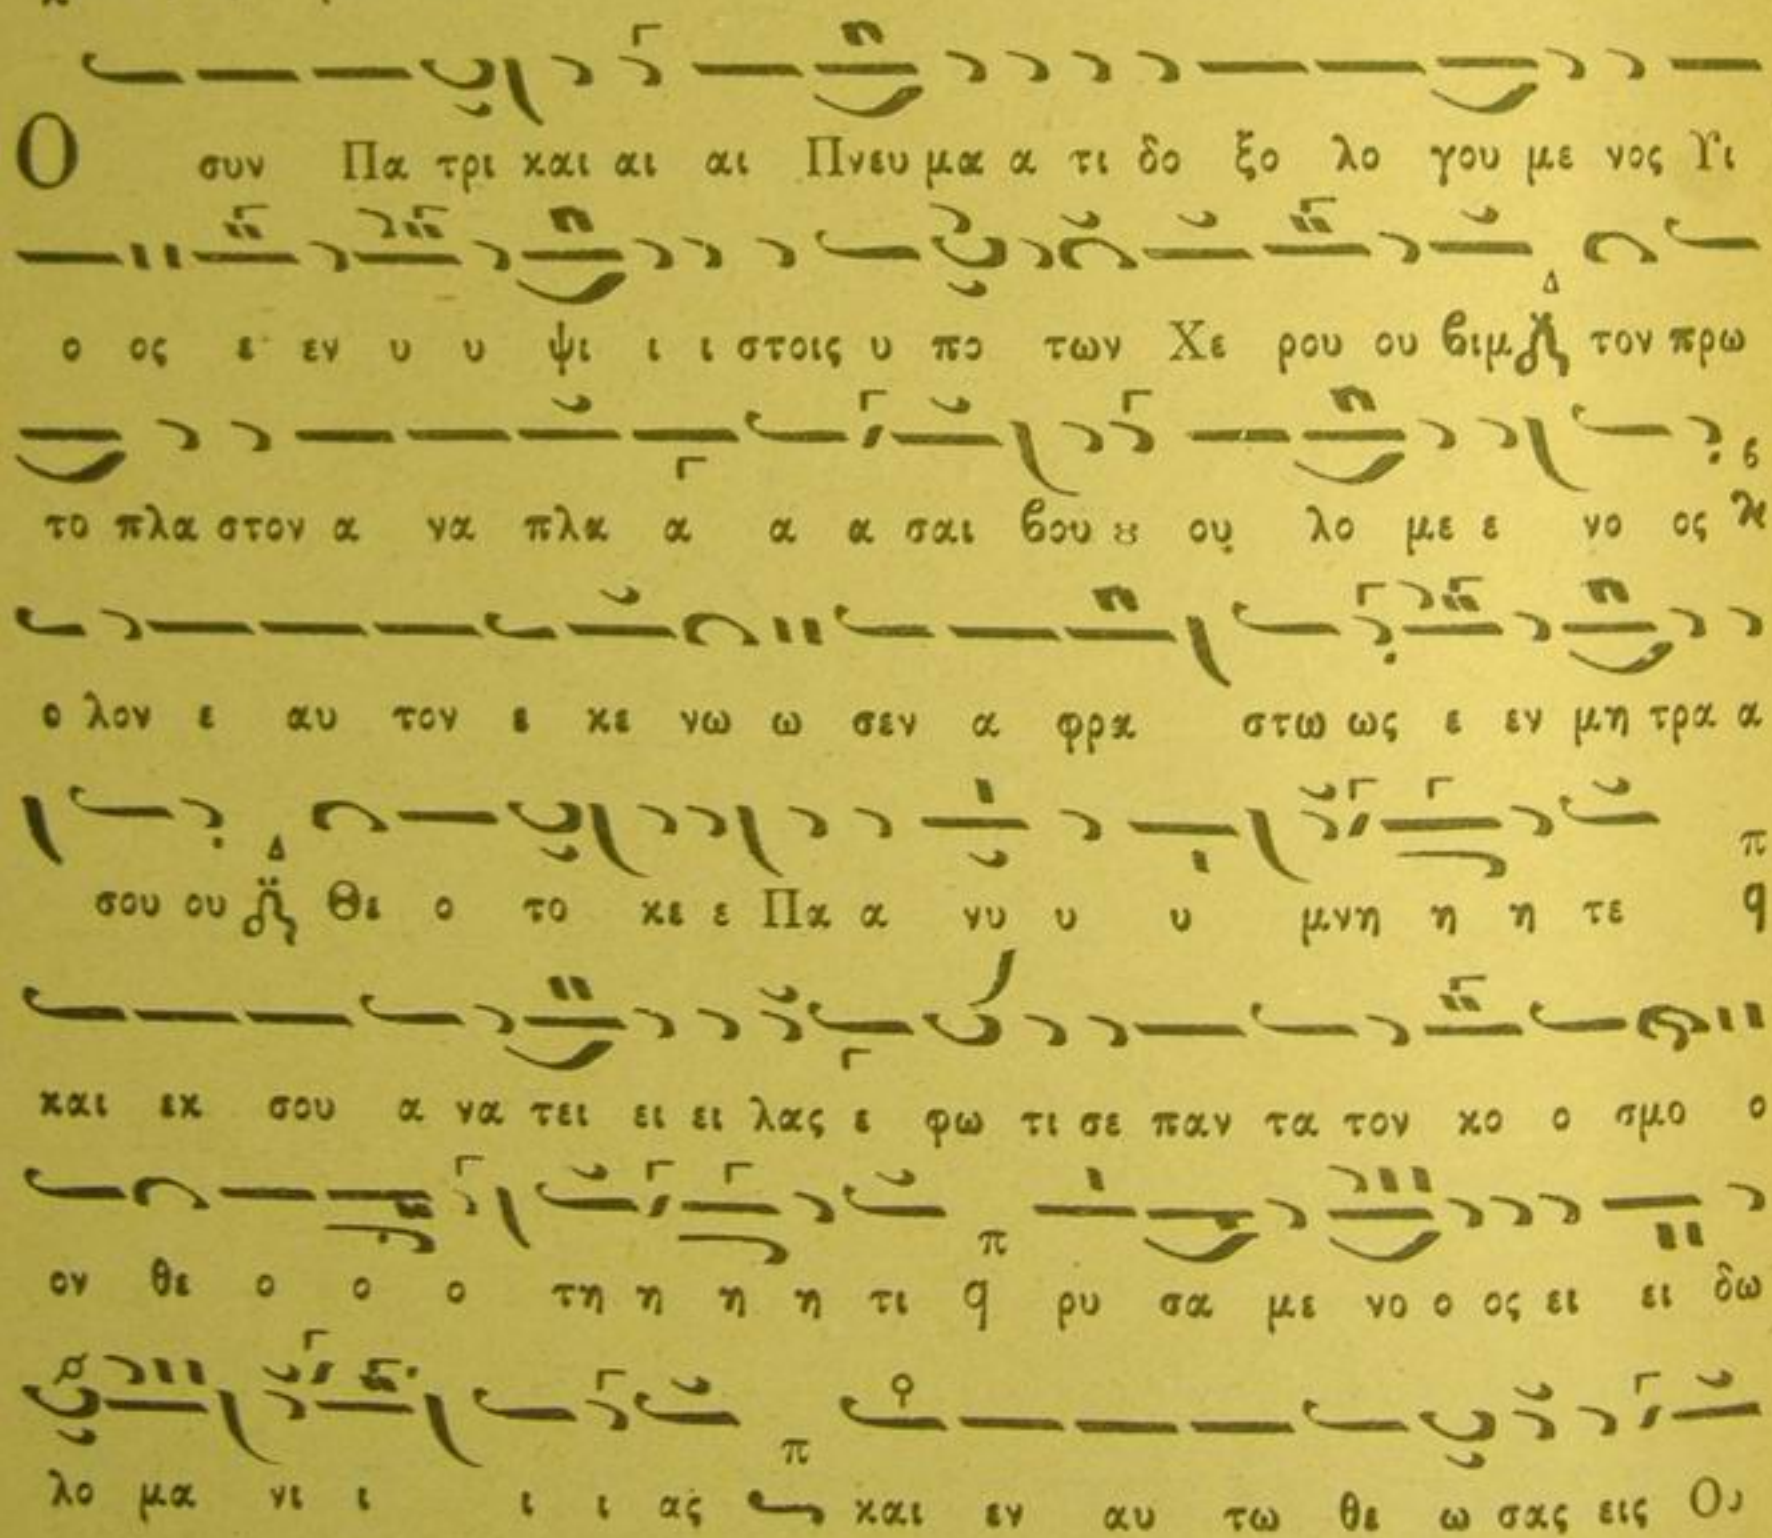 Ο συν Πα τρι και αι αι Πνευ μα α τι δο ξο λο γου με νος Υι
ο ος ε εν υ υ ψι ι ι στοις υ πο των Χε ρου ου βιμ Δ τον πρω
το πλα στον α να πλα α α α σαι βου ȣ ου λο με ε νο ος
ο λον ε αυ τον ε κε νω ω σεν α φρα στω ως ε εν μη τρα α
σου ου Δ Θε ο το κε ε Πα α νυ υ υ μνη η η τε π q
και εκ σου α να τει ει ει λας ε φω τι σε παν τα τον κο ο σμο ο
ον θε ο ο ο τη η η η τι π q ρυ σα με νο ο ος ει ει δω
λο μα νι ι ι ι ας π και εν αυ τω θε ω σας εις